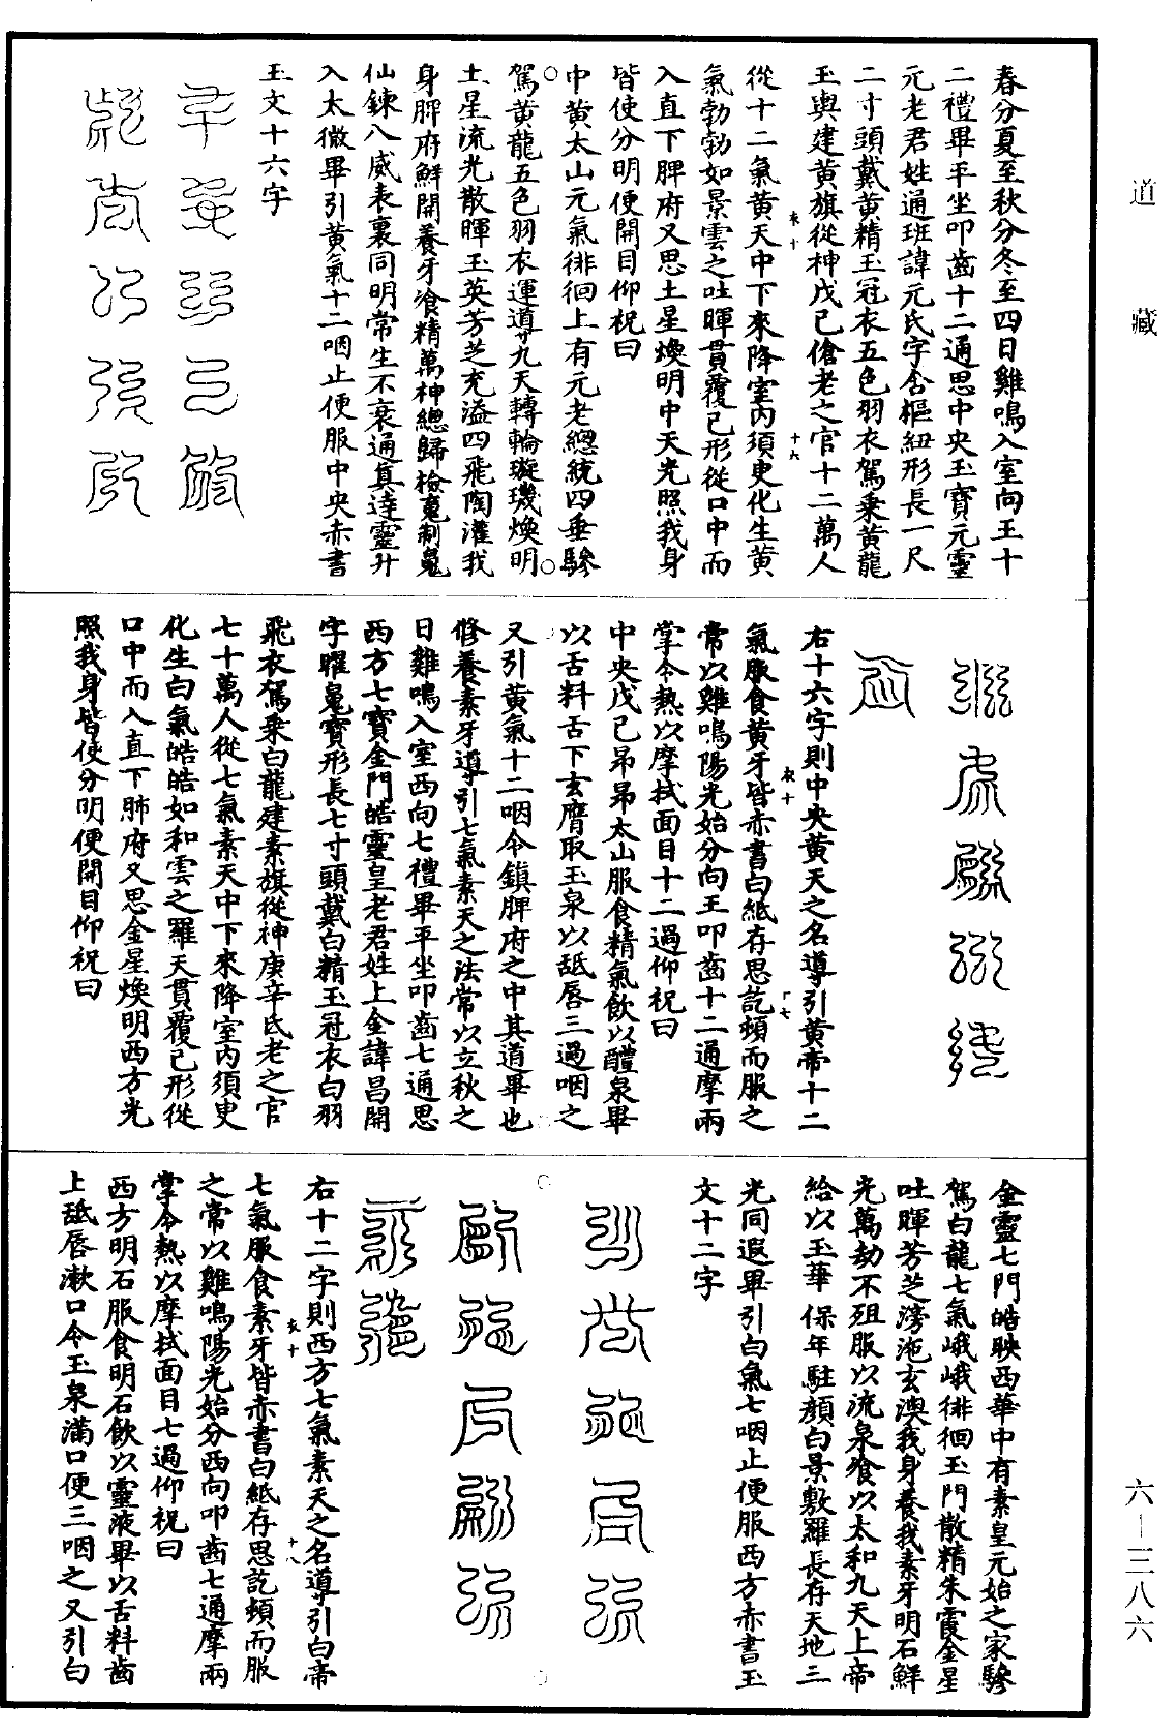 道藏
六—三八六
春分夏至秋分冬至四日雞鳴入室向王十
二禮畢平坐叩齒十二通思中央玉寶元靈
元老君姓通班諱元氏字含樞紐形長一尺
二寸頭戴黃精玉冠衣五色羽衣駕乘黃龍
玉輿建黃旗從神戊己傖老之官十二萬人
從十二氣黃天中下來降室內須臾化生黃
氣勃勃如景雲之吐暉貫覆己形從口中而
入直下脾府又思土星煥明中天光照我身
皆使分明便開目仰祝曰
中黃太山元氣徘徊上有元老總統四垂驂
駕黃龍五色羽衣運導九天轉輪璇璣煥明
土星流光散暉玉英芳芝充溢四飛陶灌我
身脾府鮮開養牙飡精萬神總歸檢䰟制鬼
仙鍊八威表裏同明常生不衰通真達靈升
入太微畢引黃氣十二咽止便服中央赤書
玉文十六字
右十六字則中央黃天之名導引黃帝十二
氣服食黃牙皆赤書白紙存思訖頓而服之
常以雞鳴陽光始分向王叩齒十二通摩兩
掌令熱以摩拭面目十二過仰祝曰
中央戊己昂昂太山服食精氣飲以醴泉畢
以舌料舌下玄膺取玉泉以舐唇三過咽之
又引黃氣十二咽令鎮脾府之中其道畢也
修養素牙導引七氣素天之法常以立秋之
日雞鳴入室西向七禮畢平坐叩齒七通思
西方七寶金門皓靈皇老君姓上金諱昌開
字曜䰟寶形長七寸頭戴白精玉冠衣白羽
飛衣駕乘白龍建素旗從神庚辛氐老之官
七十萬人從七氣素天中下來降室內須臾
化生白氣皓皓如和雲之羅天貫覆己形從
口中而入直下肺府又思金星煥明西方光
照我身皆使分明便開目仰祝曰
金靈七門皓映西華中有素皇元始之家驂
駕白龍七氣峨峨徘徊玉門散精朱霞金星
吐暉芳芝滂沲玄澳我身養我素牙明石鮮
光萬劫不殂服以流泉飡以太和九天上帝
給以玉華保年駐顏白景敷羅長存天地三
光同遐畢引白氣七咽止便服西方赤書玉
文十二字
右十二字則西方七氣素天之名導引白帝
七氣服食素牙皆赤書白紙存思訖頓而服
之常以雞鳴陽光始分西向叩齒七通摩兩
掌令熱以摩拭面目七過仰祝曰
西方明石服食明石飲以靈液畢以舌料齒
上舐唇漱口令玉泉滿口便三咽之又引白